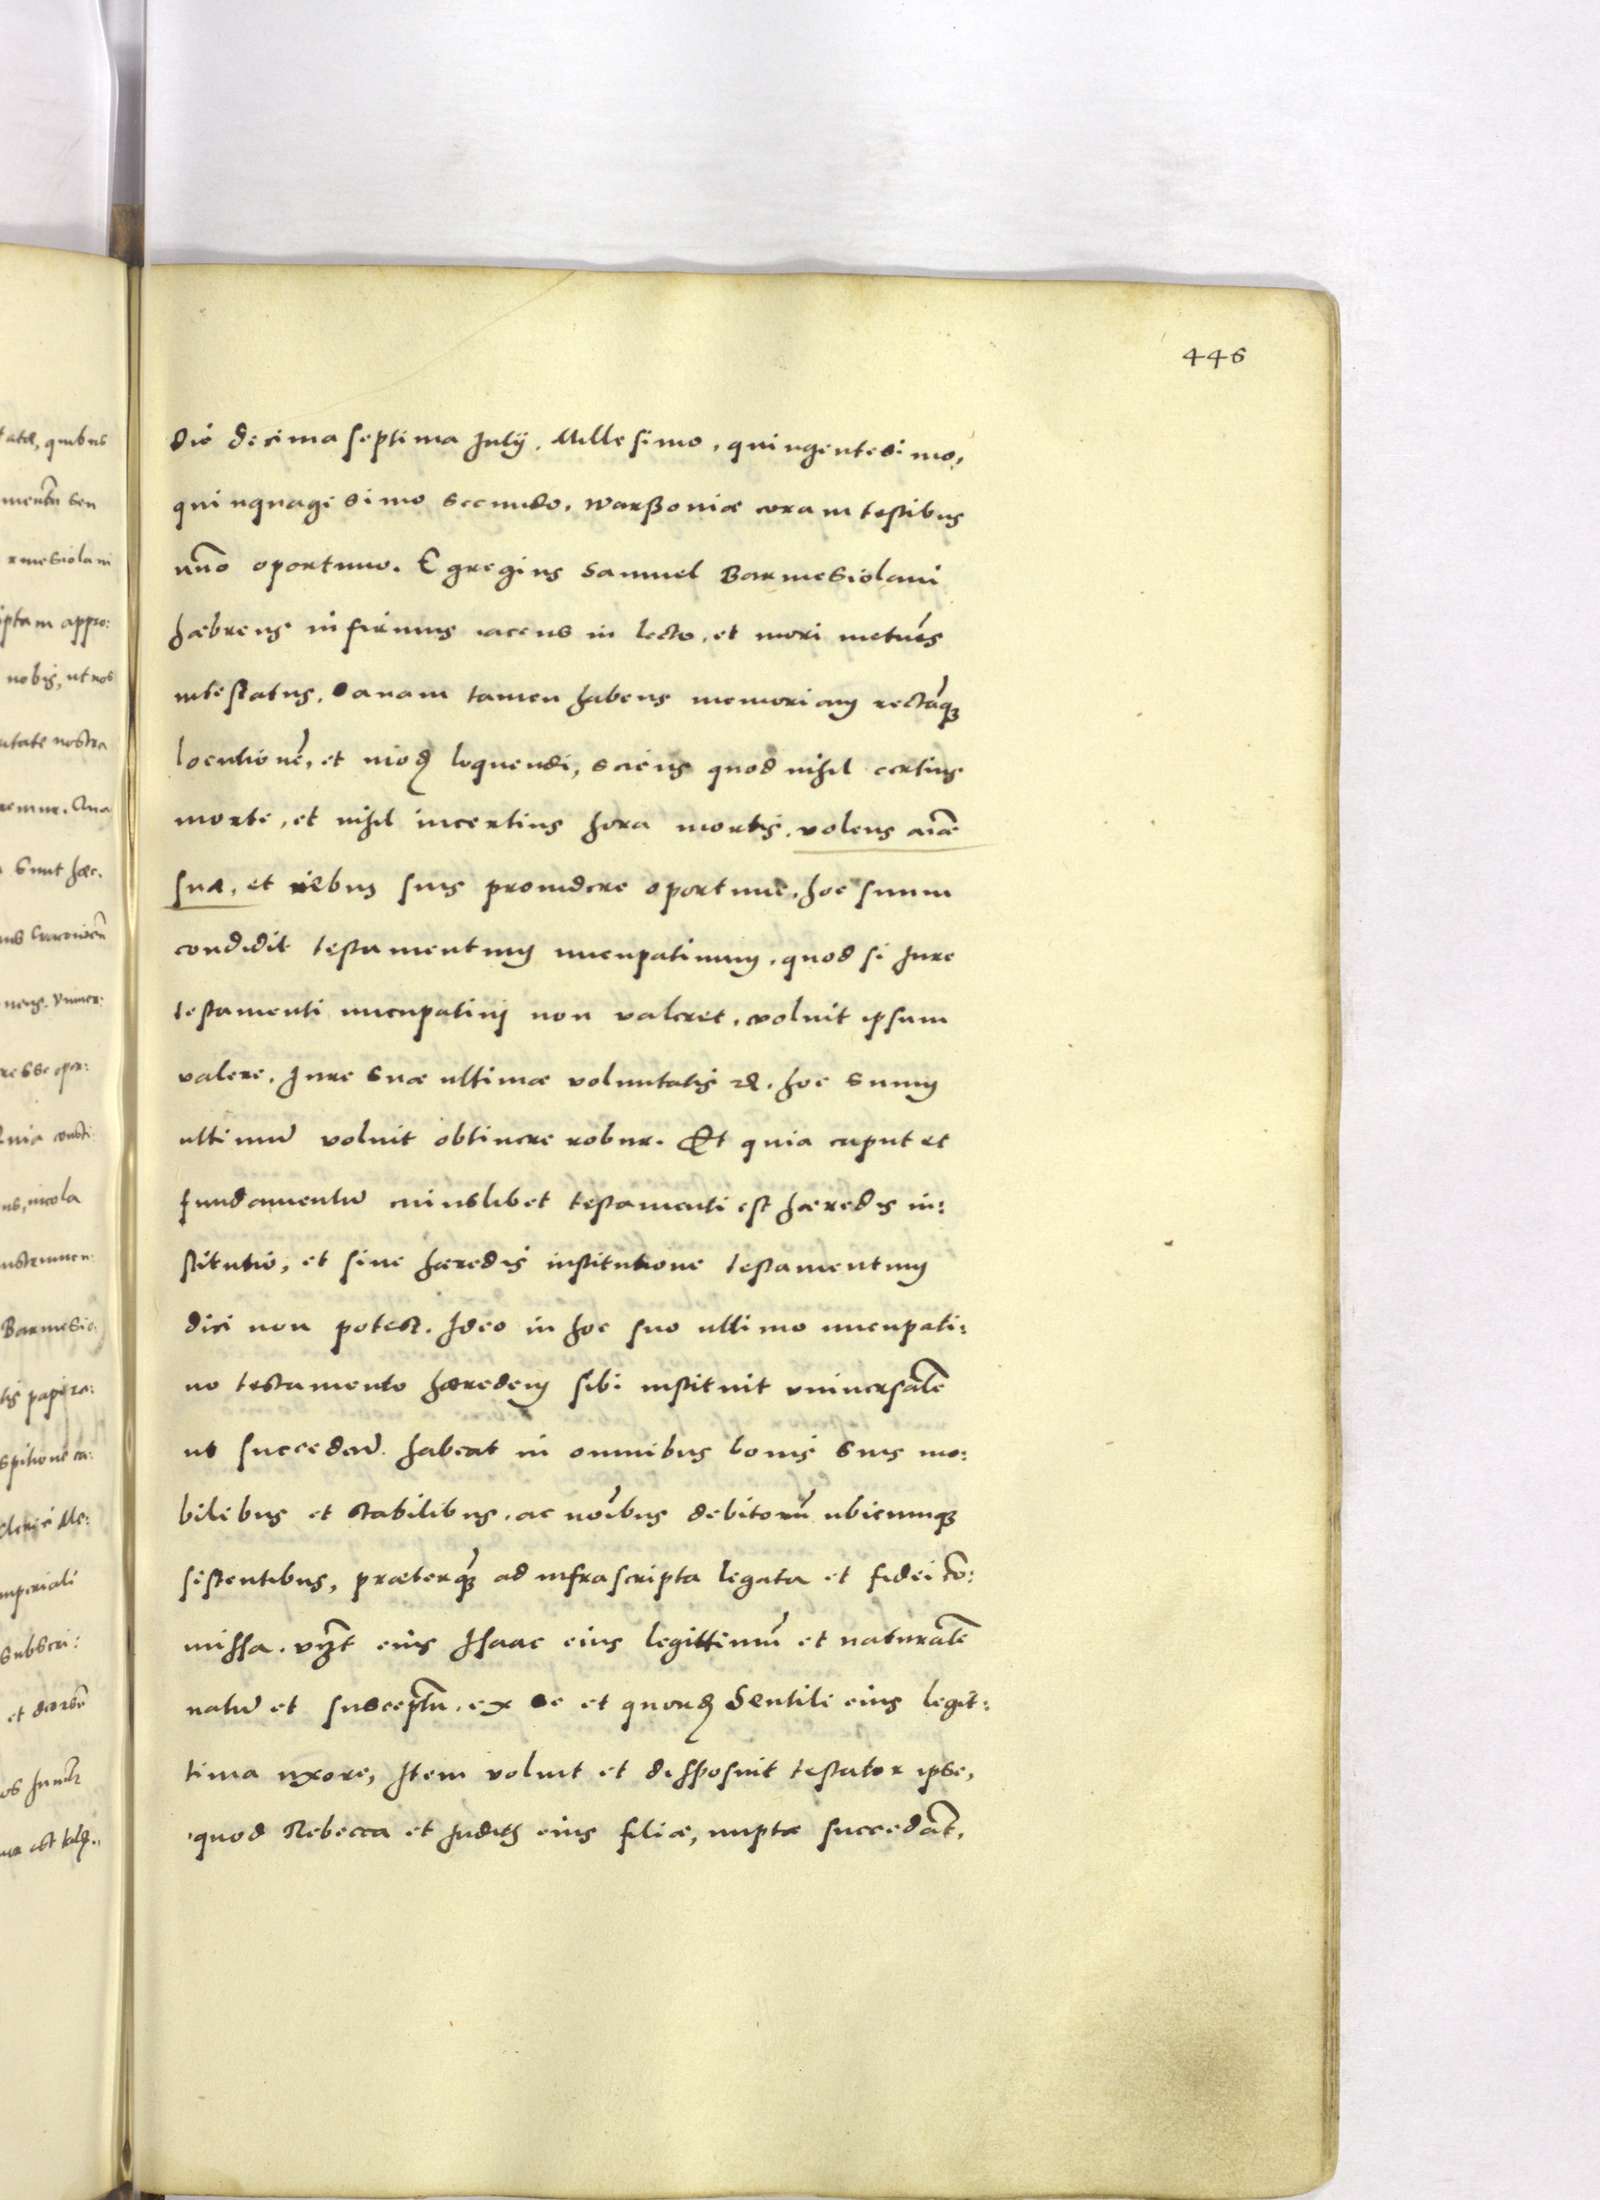 446
die decima septima Julij. Millesimo, quingentesimo,
quinquagesimo secundo, warßoviæ coram testibus
nũo oportuno. Egregius Samuel Barmesiolami
hæbreus infirmus iacens in lecto, et mori metuẽs
intestatus, sanam tamen habens memoriam rectãqꝫ
locutionẽ, et modũ loquendi, sciens quod nihil certius
morte, et nihil incertius hora mortis, volens aĩæ
suæ, et rebus suis prouidere oportune, hoc suum
condidit testamentum nuncupatiuum, quod si Jure
testamenti nuncupatiui non valeret, voluit ipsum
valere, Jure suæ ultimæ voluntatis et. hoc suum
ultimũ voluit obtinere robur. Et quia caput et
fundamentũ cuiuslibet testamenti est hæredis in:
stitutio, et sine hæredis institutione testamentum
dici non potest. Ideo in hoc suo ultimo nuncupati:
uo testamento hæredem sibi instituit vniuersalẽ
ut succedere habeat in omnibus bonis suis mo:
bilibus et stabilibus, ac noĩbus debitorũ ubicunqꝫ
sistentibus, præterqꝫ ad infrascripta legata et fidei cõ:
missa. vꝫt eius Isaac eius legittimũ et naturalẽ
natũ et susceptũ, ex se et quondã Gentile eius legit:
tima uxore, Item voluit et disposuit testator ipse,
quod Rebecca et Judith eius filiæ, nuptæ succedãt,
tatæ, quibus
mentũ seu
rmesiolami
iptam appro:
nobis, ut nos
nostra
sunt hæc.
incola
Barmesio
mperiali
subscri: